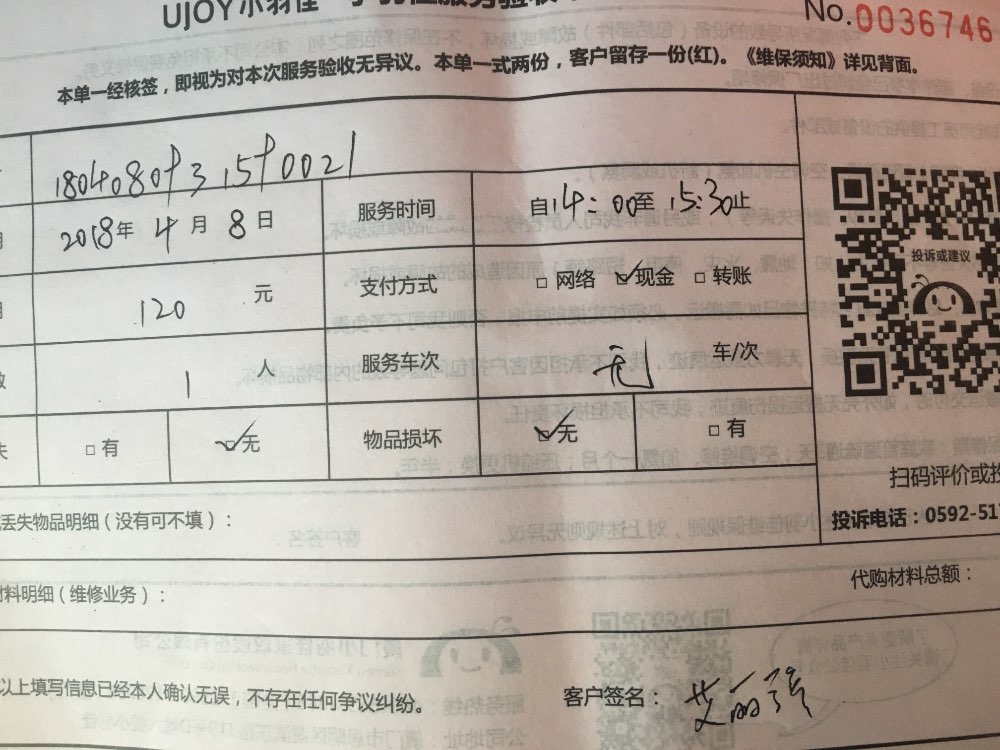 UJOY小羽佳
No.0036746
本单一经核签，即视为对本次服务验收无异议。本单一式两份，客户留存一份(红)。《维保须知》详见背面。
2018年 4月 8日 服务时间 自14:00至 15:30止
120 元 支付方式 □ 网络 ☑现金 □ 转账
1 人 服务车次 无 车/次
□ 有 ☑无 物品损坏 ☑无 □ 有
投诉或建议
扫码评价或投
投诉电话：0592-517
丢失物品明细（没有可不填）：
材料明细（维修业务）： 代购材料总额：
以上填写信息已经本人确认无误，不存在任何争议纠纷。 客户签名：